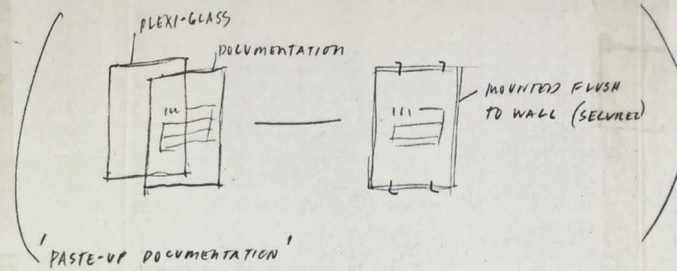 PLEXI-GLASS
DOCUMENTATION
MOUNTED FLUSH
TO WALL (SECURED)
'PASTE-UP DOCUMENTATION'